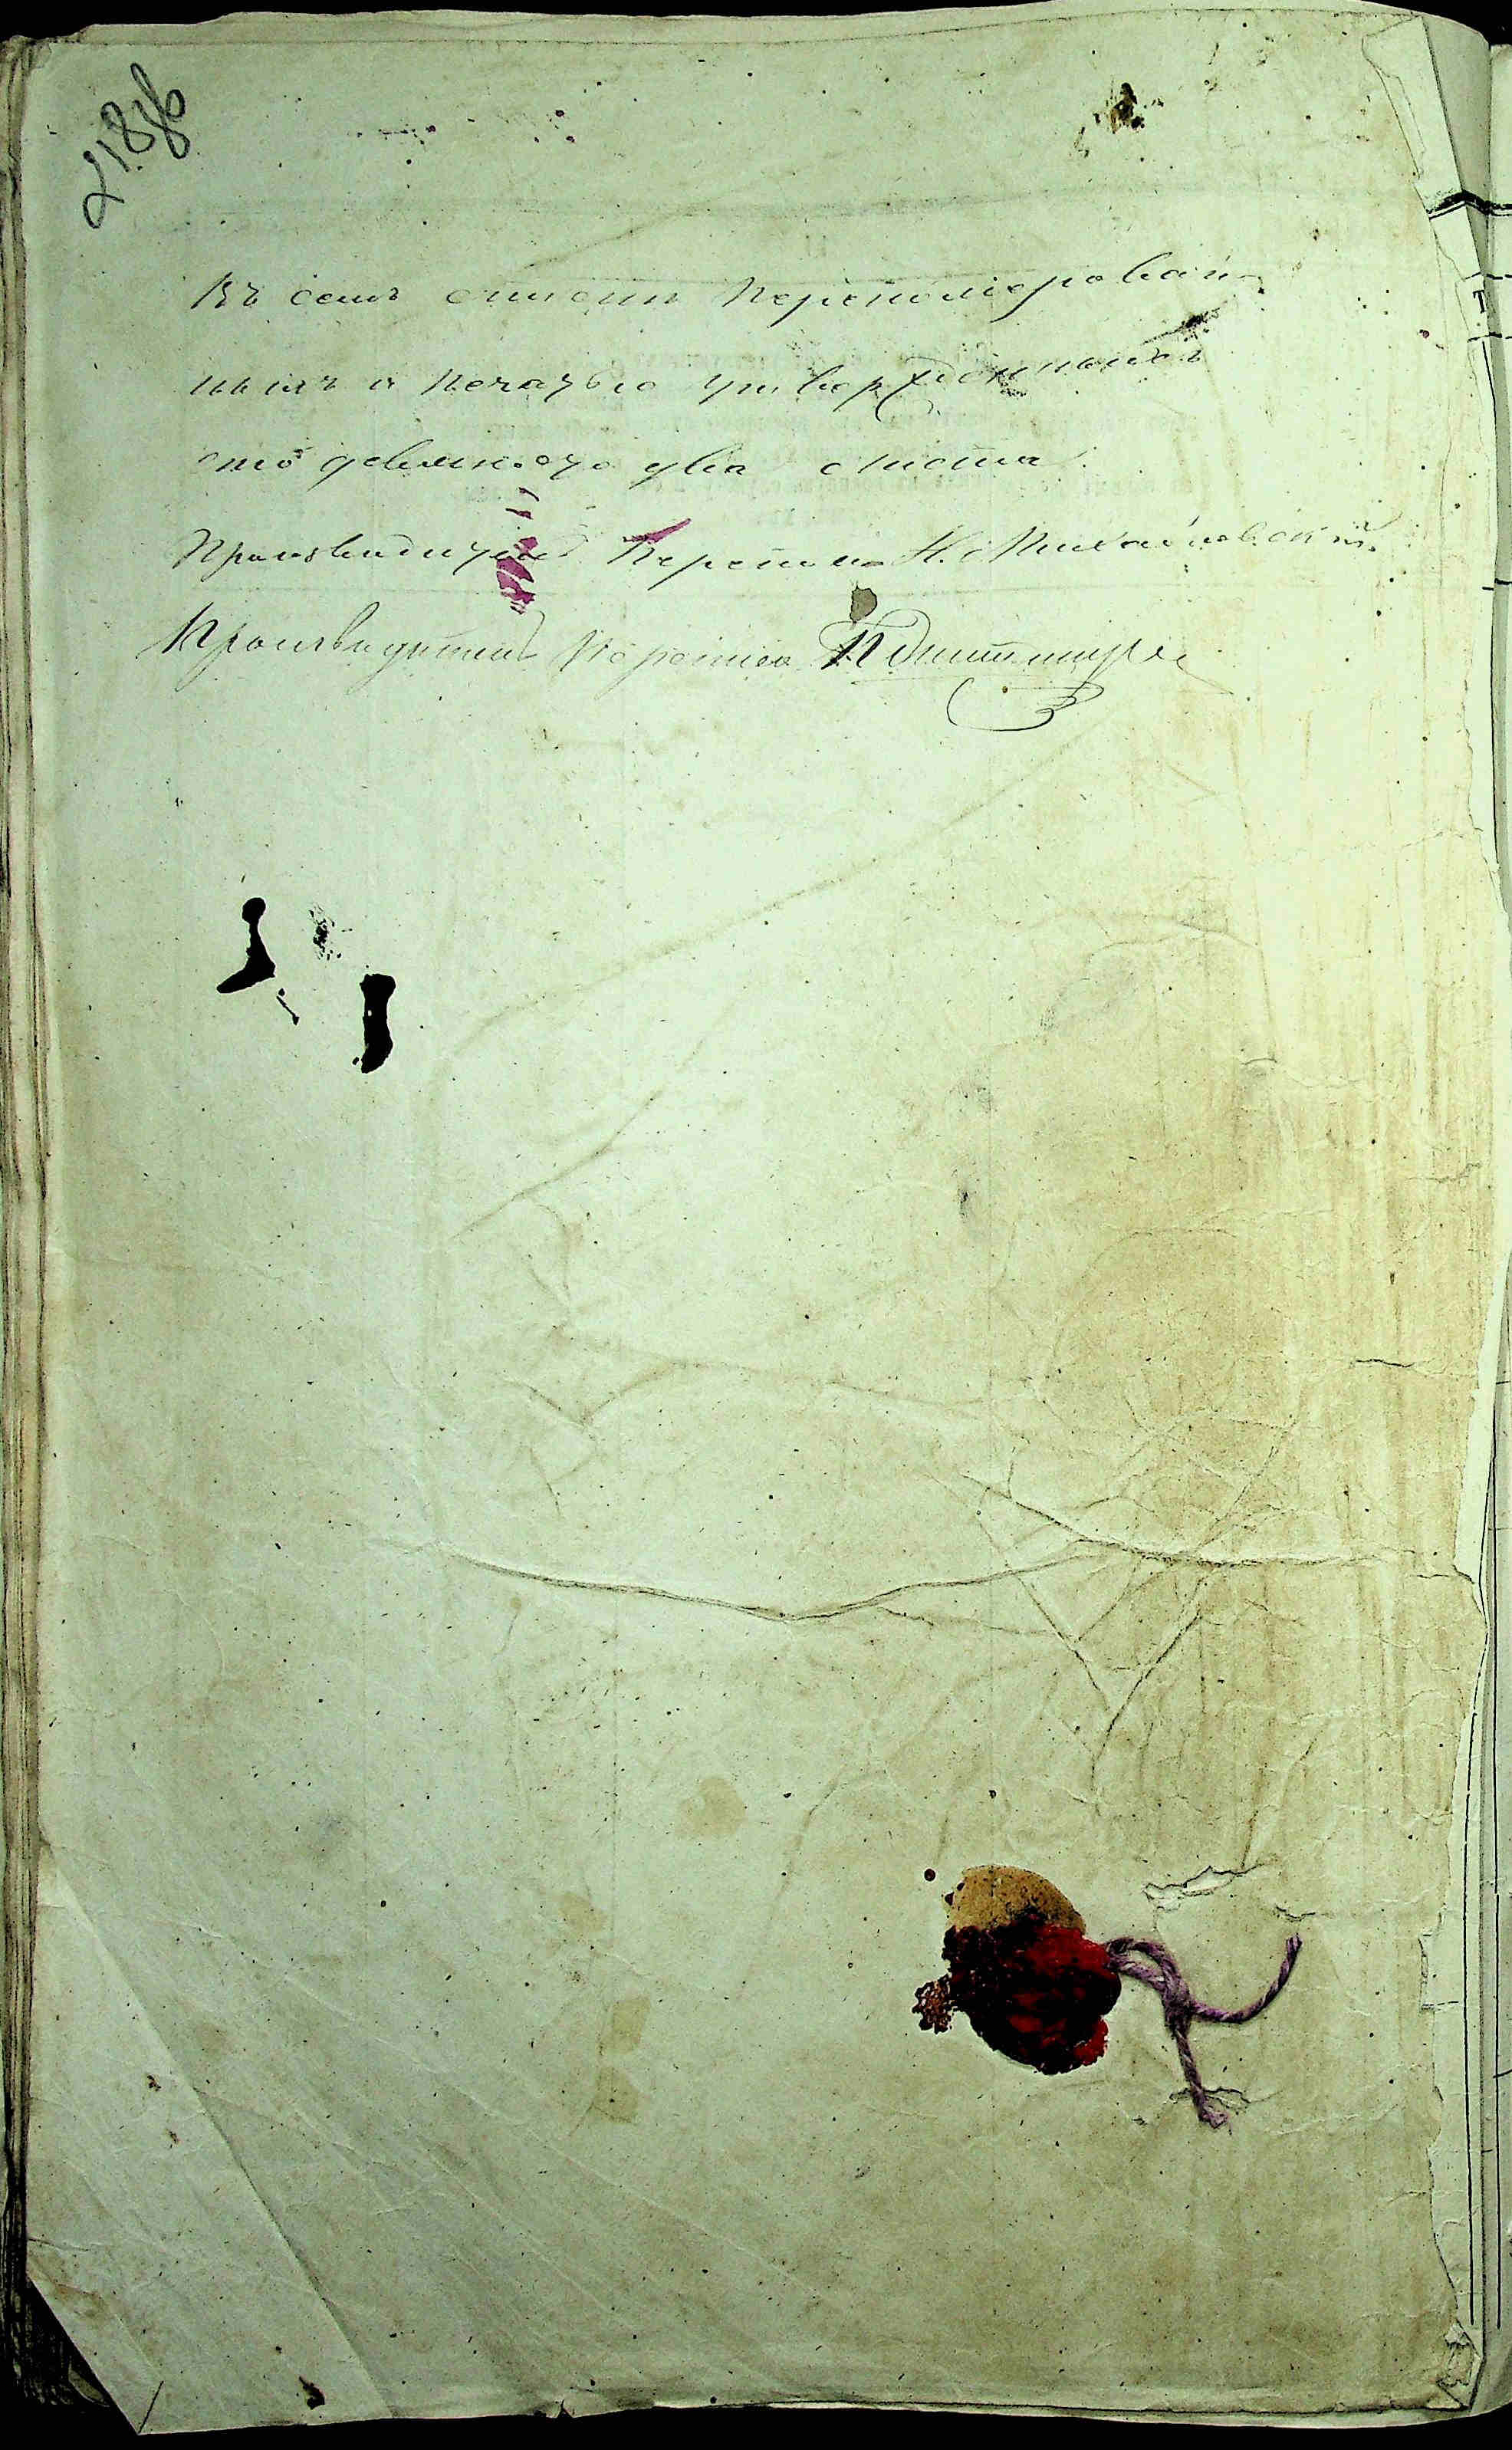 218 об
Въ семъ описи перенумерован-
ныхъ и печатью утвержденныхъ
сто девяносто два листа
Производитель Переписи Н. Михайловский.
Производитель Переписи